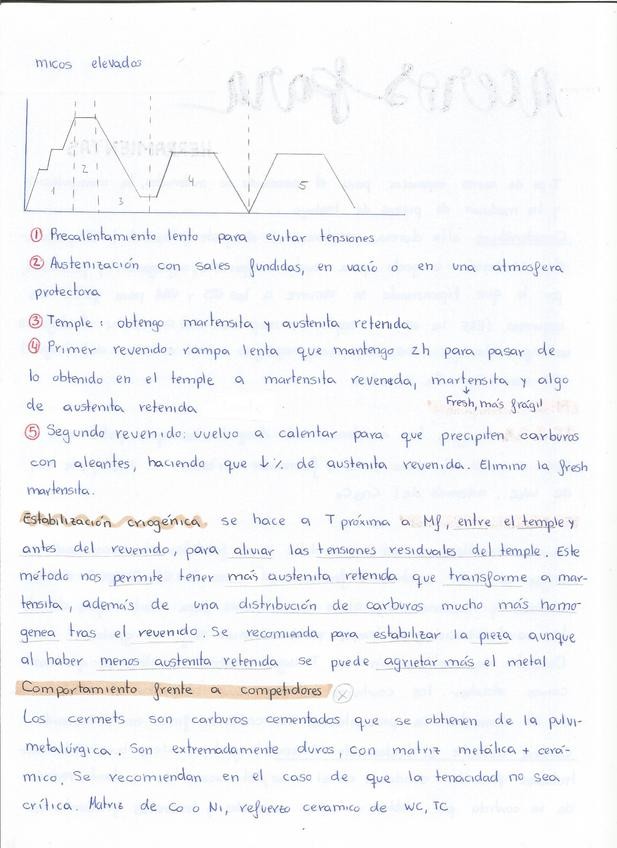 micos elevados
1 2 3 4 5
① Precalentamiento lento para evitar tensiones
② Austenización con sales fundidas, en vacío o en una atmosfera
protectora
③ Temple: obtengo martensita y austenita retenida
④ Primer revenido: rampa lenta que mantengo 2h para pasar de
lo obtenido en el temple a martensita revenida, martensita y algo
↓
Fresh, más frágil
de austenita retenida
⑤ Segundo revenido: vuelvo a calentar para que precipiten carburos
con aleantes, haciendo que ↓% de austenita revenida. Elimino la fresh
martensita.
Estabilización criogénica se hace a T próxima a Mf, entre el temple y
antes del revenido, para aliviar las tensiones residuales del temple. Este
método nos permite tener más austenita retenida que transforme a mar-
tensita, además de una distribución de carburos mucho más homo-
genea tras el revenido. Se recomienda para estabilizar la pieza aunque
al haber menos austenita retenida se puede agrietar más el metal
Comportamiento frente a competidores ⓧ
Los cermets son carburos cementados que se obtienen de la pulvi-
metalúrgica. Son extremadamente duros, con matriz metálica + cerá-
mico. Se recomiendan en el caso de que la tenacidad no sea
crítica. Matriz de Co o Ni, refuerzo ceramico de WC, TC